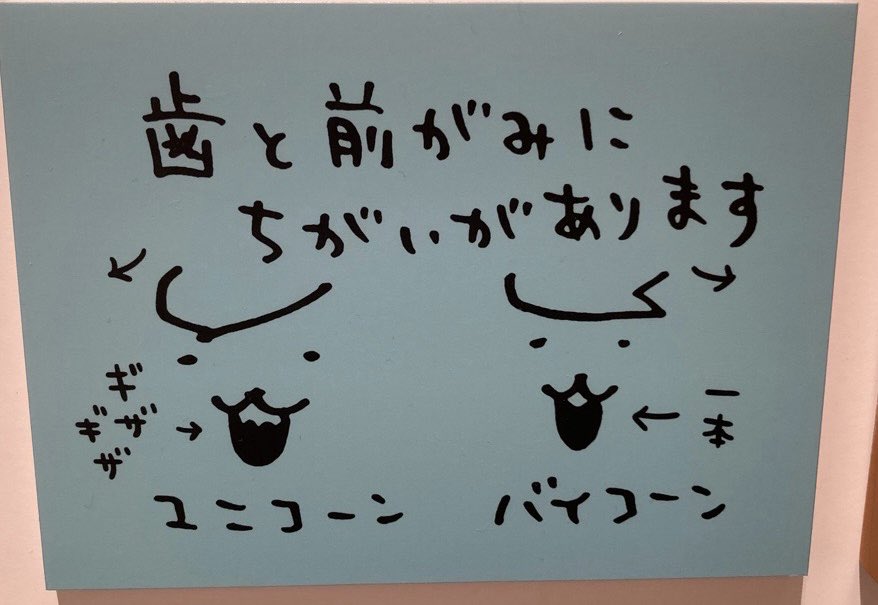 歯と前がみに
ちがいがあります
ギザギザ
一本
ユニコーン
バイコーン